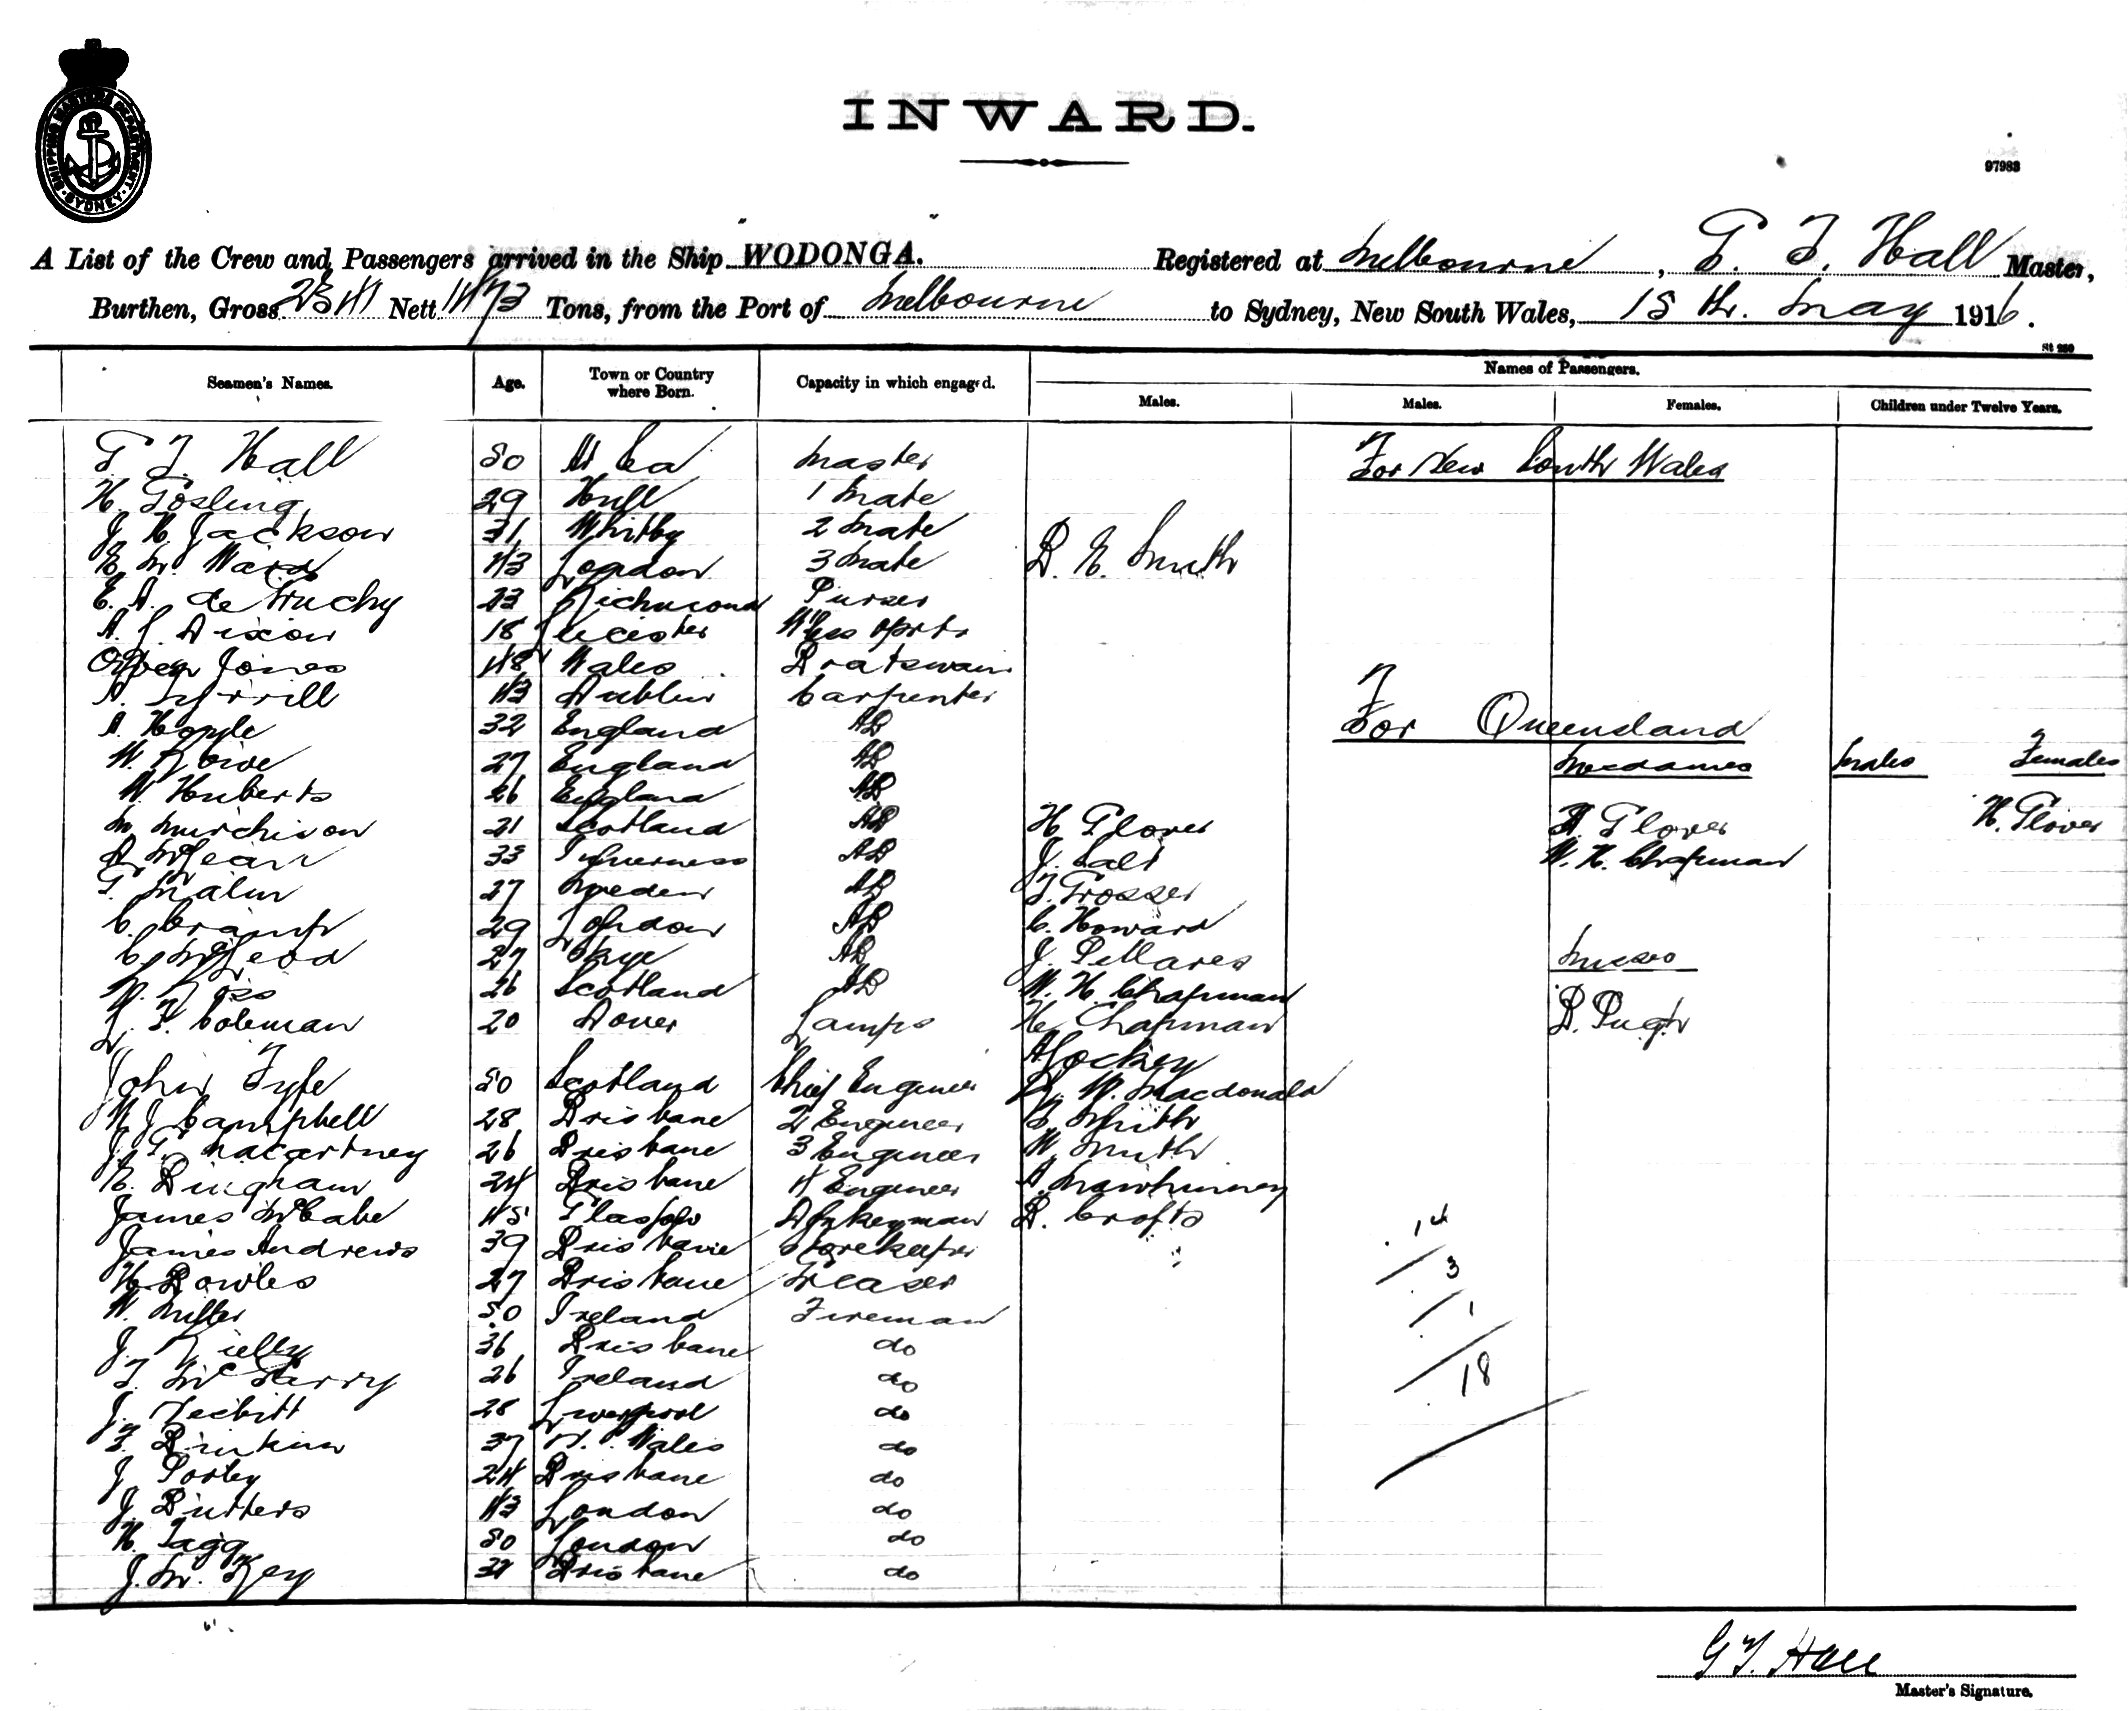 INWARD.
97983
SHIPPING MASTERS DEPARTMENT SYDNEY
A List of the Crew and Passengers arrived in the Ship WODONGA. Registered at Melbourne, G. T. Hall Master,
Burthen, Gross 2341 Nett 1473 Tons, from the Port of Melbourne to Sydney, New South Wales, 15 th. May 1916.
St 280
Seamen's Names. Age. Town or Country where Born. Capacity in which engaged. Names of Passengers.
Males. Males. Females. Children under Twelve Years.
G. T. Hall 50 At Sea Master For New South Wales
H. Gosling 29 Hull 1 Mate
J. H. Jackson 31 Whitby 2 Mate
E. M. Ward 43 London 3 Mate B. E. Smith
E. A. de Gruchy 23 Richmond Purser
A. J. Dixon 18 Leicester W'less Oprtr
Owen Jones 48 Wales Boatswain
A. Tyrrill 43 Dublin Carpenter
A. Hopple 32 England AB For Queensland
W. Rowe 27 England AB Mesdames Males Females
W. Huberts 26 England AB
M. Murchison 21 Scotland AB H Glover A Glover H. Glover
A McLean 33 Inverness AB J. Salt W. H. Chapman
G. Malm 27 Sweden AB T. Grosser
C. Cramp 29 London AB C. Howard
C. McLeod 27 Skye AB J. Pellares Misses
W. Ross 26 Scotland AB W. H. Chapman
L. F. Coleman 20 Dover Lamps H Chapman B. Pugh
A Lockey
John Fyfe 50 Scotland Chief Engineer W. Macdonald
W J Campbell 28 Brisbane 2 Engineer G Smith
J. G. Macartney 26 Brisbane 3 Engineer W Smith
H. Bingham 24 Brisbane 4 Engineer A. Mawhinney
James McCabe 45 Glasgow Dnkeyman B. Crofts 14
James Andrews 39 Brisbane Storekeeper
H. Bowles 27 Brisbane Greaser 3
W. Miller 50 Ireland Fireman 1
J. Rielly 36 Brisbane do
T. McGarry 26 Ireland do 18
J. Nesbitt 28 Liverpool do
F. Brinkin 37 N. S. Wales do
J. Sorley 24 Brisbane do
J. Butters 43 London do
H. Tagg 50 London do
J. M. Key 32 Brisbane do
G T. Hall
Master's Signature.